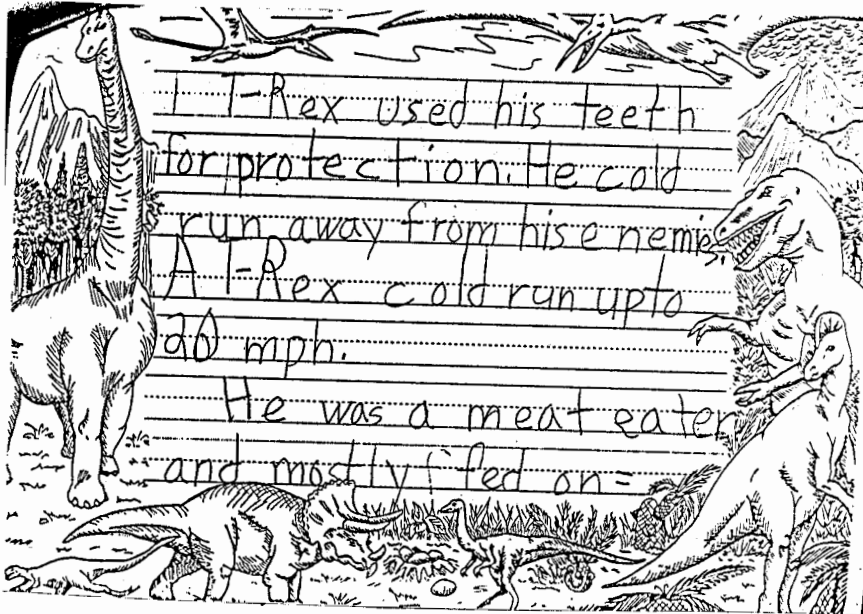 T-Rex used his teeth
for protection. He cold
run away from his enemies.
A T-Rex cold run upto
20 mph.
He was a meat eater
and mostly fed on=